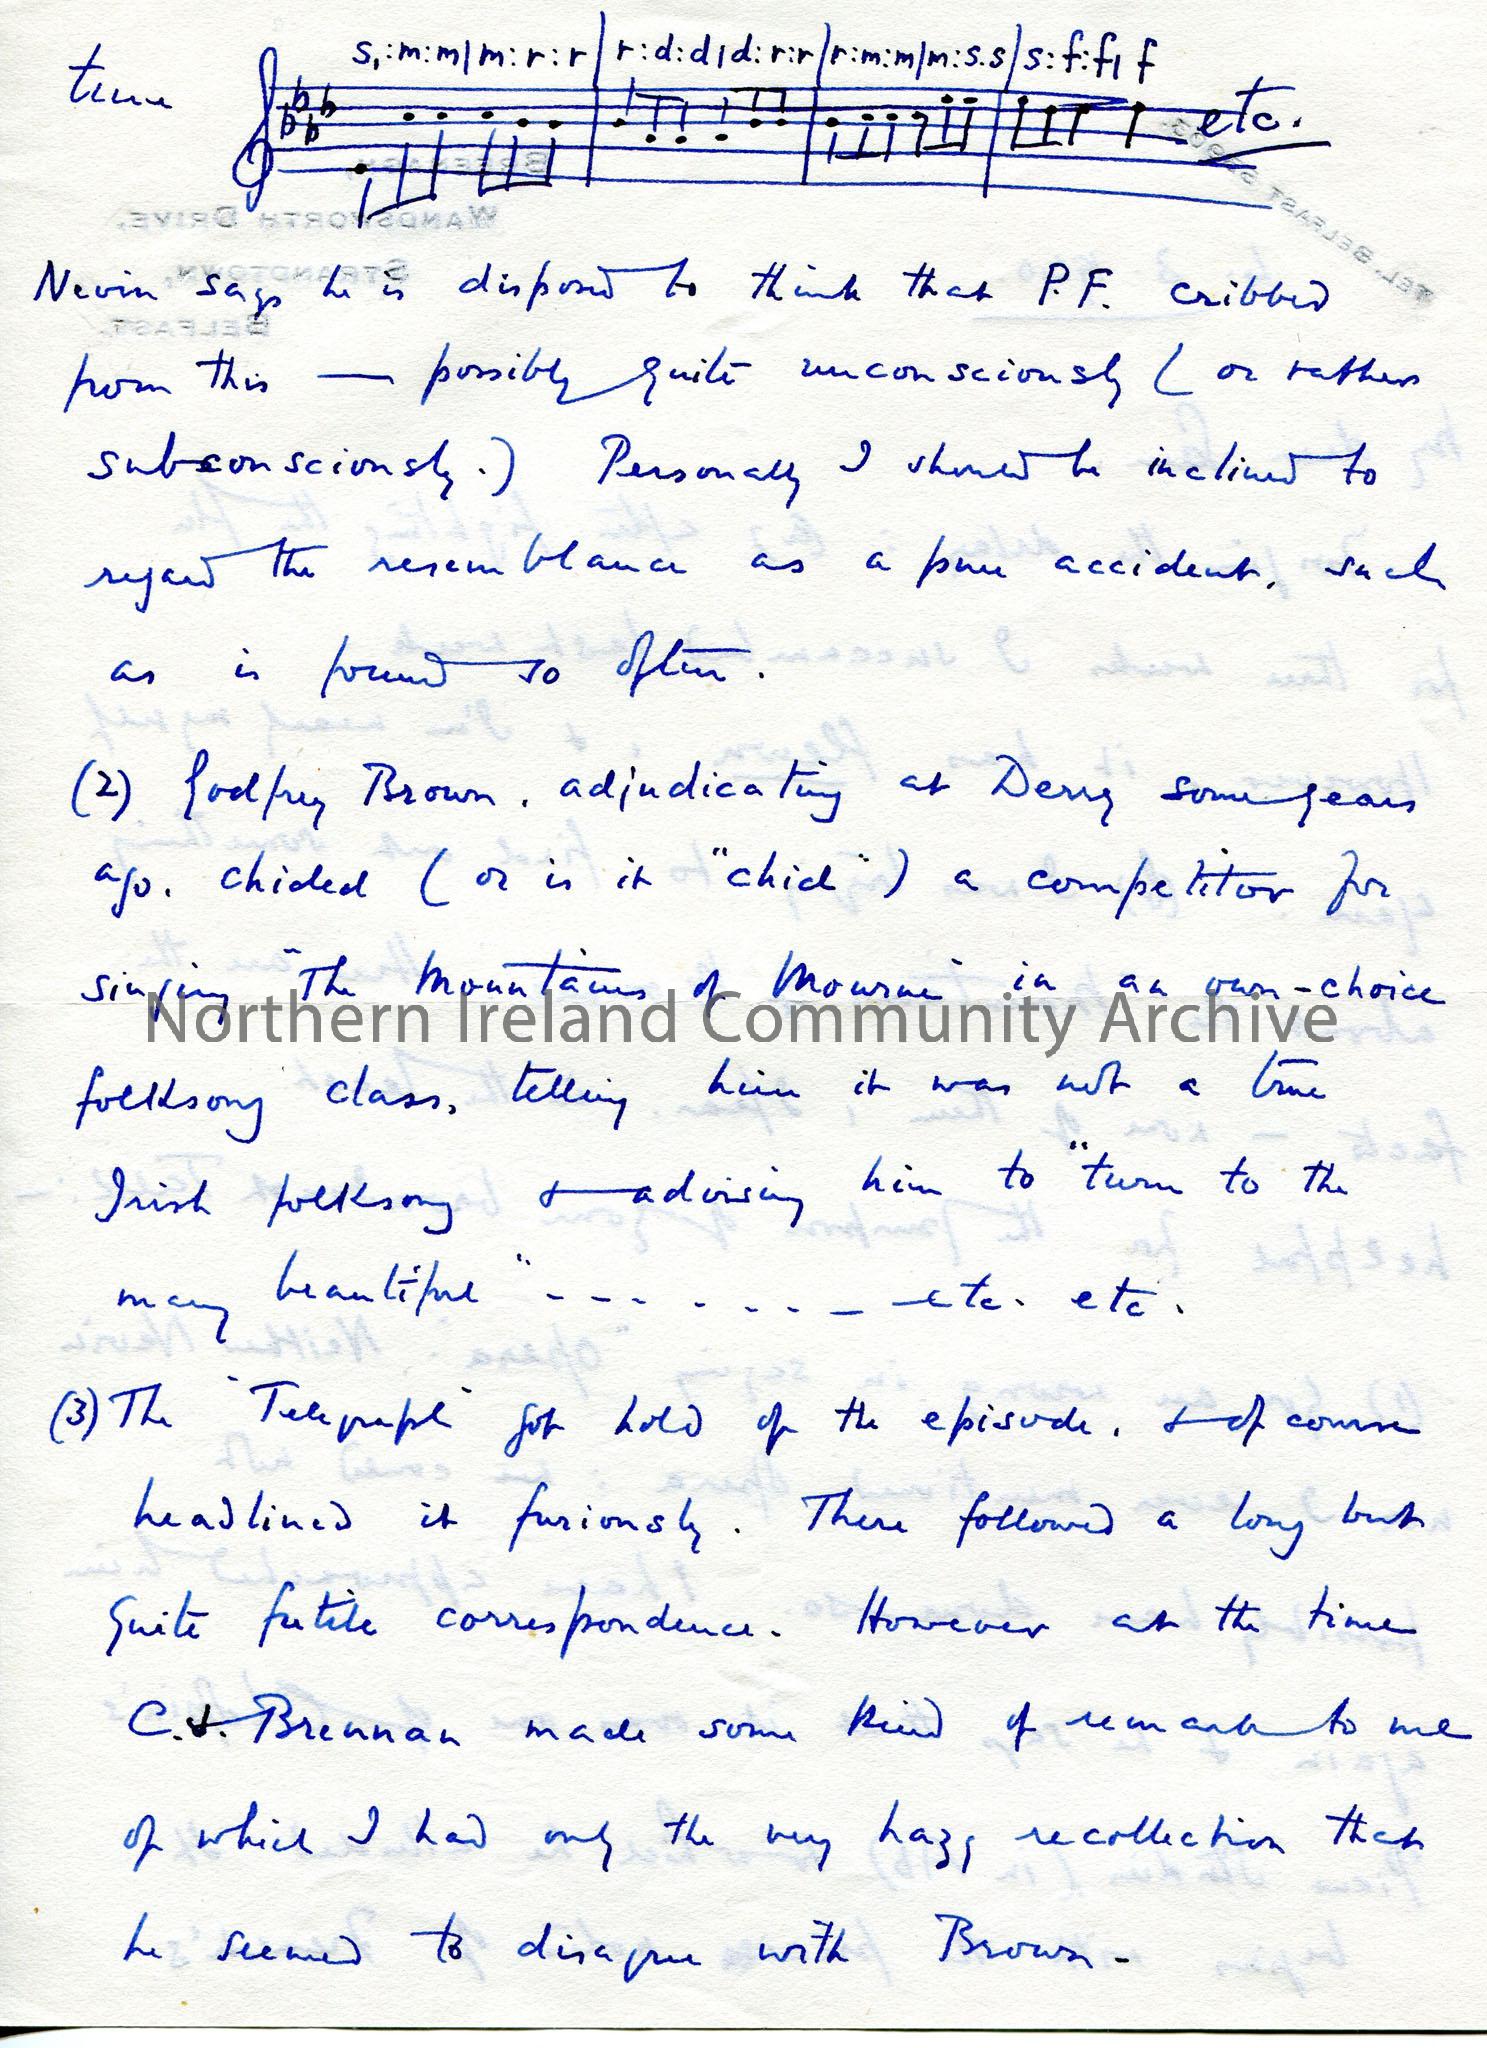 s,:m:m|m:r:r|r:d:d|d:r:r|r:m:m|m:s:s|s:f:f|f
tune etc.
Nevin says he is disposed to think that P.F. cribbed
from this — possibly quite unconsciously (or rather
subconsciously.) Personally I should be inclined to
regard the resemblance as a pure accident, such
as is found so often.
(2) Godfrey Brown, adjudicating at Derry some years
ago, chided (or is it "chid") a competitor for
singing "The Mountains of Mourne" in an own-choice
Northern Ireland Community Archive
folksong class, telling him it was not a true
Irish folksong & advising him to "turn to the
many beautiful" - - - - - - - - etc. etc.
(3) The "Telegraph" got hold of the episode, & of course
headlined it furiously. There followed a long but
quite futile correspondence. However at the time
C. Brennan made some kind of remark to me
of which I had only the very hazy recollection that
he seemed to disagree with Brown.
BREENAGH,
WANDSWORTH DRIVE,
STRANDTOWN,
BELFAST.
TEL. BELFAST